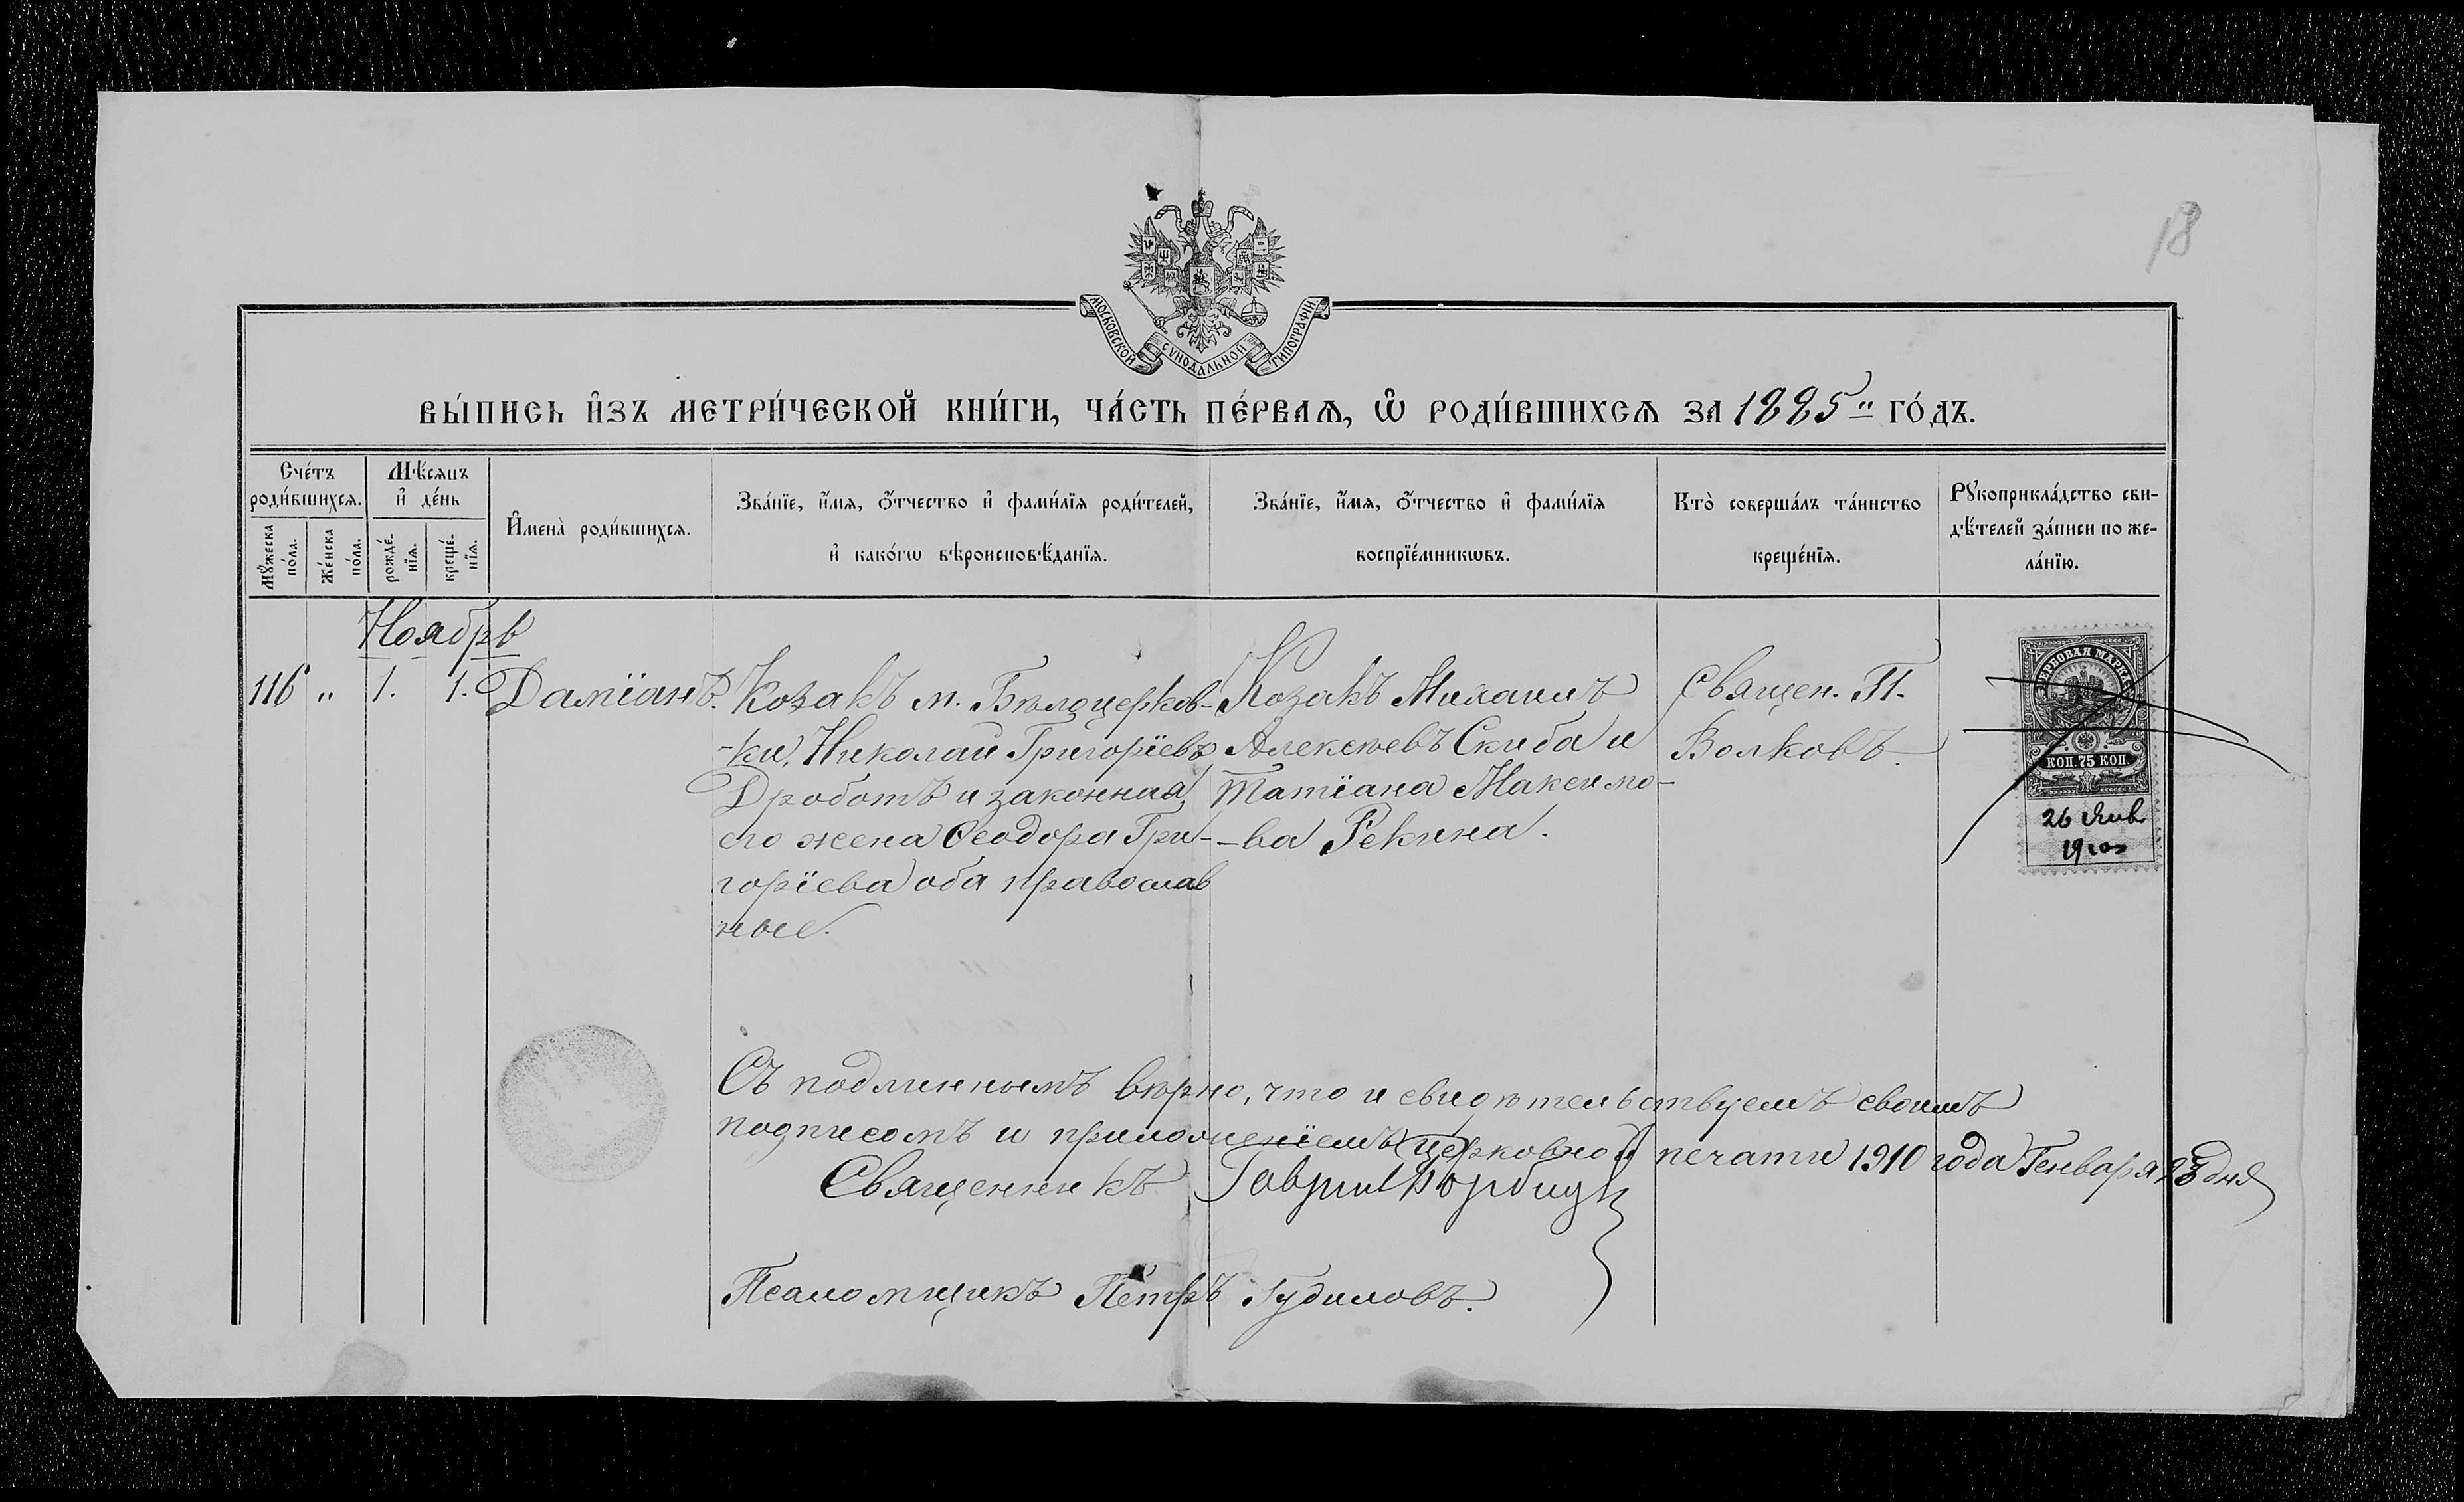 18
МОСКОВСКОЙ СѴНОДАЛЬНОЙ ТИПОГРАФІИ
ВЫ́ПИСЬ И҆ЗЪ МЕТРИ́ЧЕСКОЙ КНИ́ГИ, ЧА́СТЬ ПЕ́РВАѦ, Ѽ РОДИ́ВШИХСѦ ЗА 1885 " ГО́ДЪ.
Сче́тъ
роди́вшихсѧ.
Мꙋ́жеска
по́ла.
Же́нска
по́ла.
Мѣ́сяцъ
и҆ де́нь
рожде́-
нїѧ.
креще́-
нїѧ.
И҆мена̀ роди́вшихсѧ.
Зва́нїе, и҆́мѧ, ѻ҆́тчество и҆ фами́лїѧ роди́телей,
и҆ како́гѡ вѣроисповѣ́данїѧ.
Зва́нїе, и҆́мѧ, ѻ҆́тчество и҆ фами́лїѧ
воспрїе́мникѡвъ.
Кто̀ соверша́лъ та́инство
креще́нїѧ.
Рꙋкоприкла́дство сви-
дѣ́телей за́писи по же-
ла́нїю.
Ноябрь
116 " 1. 1. Даміанъ.
Козакъ м. Бѣлоцерков-
-ки, Николай Григоріевъ
Дроботъ и законная
его жена Ѳеодора Гри-
горіева оба православ
ные.
Козакъ Михаилъ
Алексѣевъ Скиба и
Татіана Максимо-
-ва Рекина.
Священ. П.
Волковъ.
ГЕРБОВАЯ МАРКА
КОП. 75 КОП.
26 Янв
1910
Съ подлиннымъ вѣрно, что и свидѣтельствуемъ своимъ
подписомъ и приложеніемъ церковной печати 1910 года Генваря 23 дня
Священникъ Гавриил
Псаломщикъ Петръ Гудимовъ.